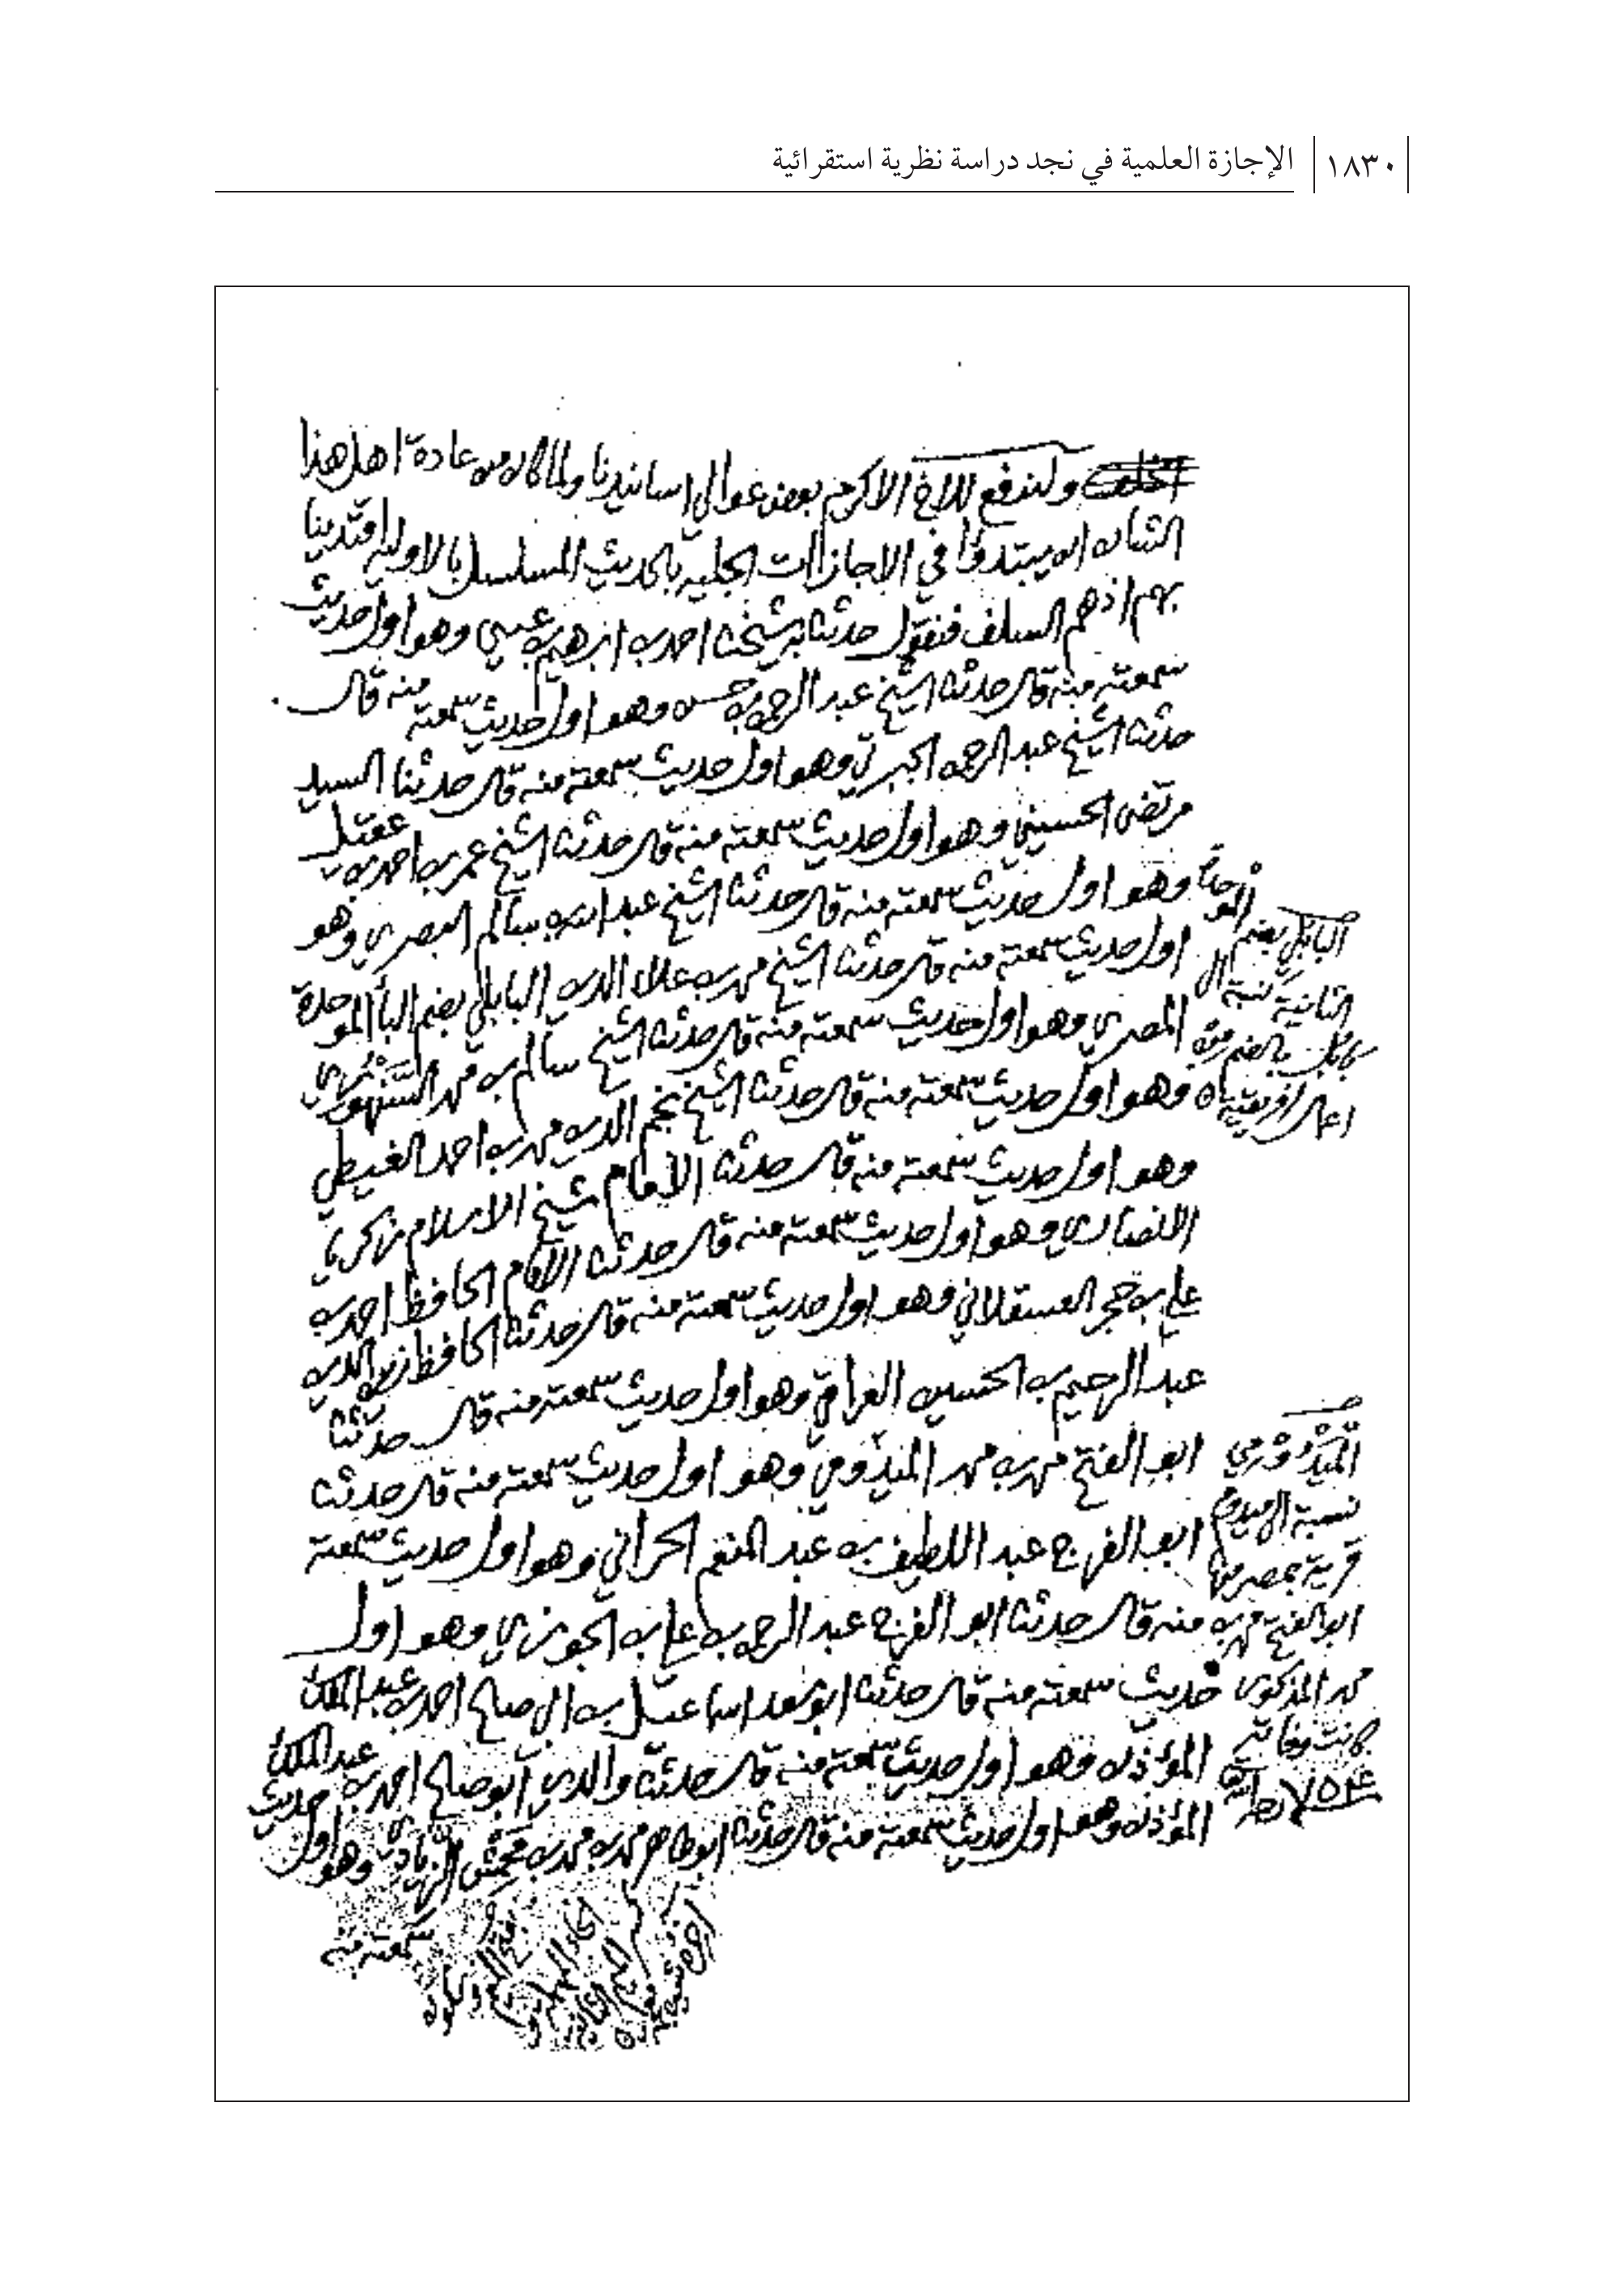 ١٨٣٠ الإجازة العلمية في نجد دراسة نظرية استقرائية
ولندفع للاخ الاكرم بعض عوالي اسانيدنا ولما كان من عادة اهل هذا
الشان ان يبتدؤا في الاجازات الجليه بالحديث المسلسل بالاوليه اقتدينا
بهم اذ هم السلف فنقول حدثنا شيخنا احمد بن ابرهيم بن عيسى وهو اول حديث
سمعته منه قال حدثنا الشيخ عبد الرحمن بن حسن وهو اول حديث سمعته منه قال
حدثنا الشيخ عبد الرحمن الجبرتي وهو اول حديث سمعته منه قال حدثنا السيد
مرتضى الحسيني وهو اول حديث سمعته منه قال حدثنا الشيخ عمر بن احمد بن عقيل
وهو اول حديث سمعته منه قال حدثنا الشيخ عبد الله بن سالم البصري وهو
اول حديث سمعته منه قال حدثنا الشيخ محمد بن علاء الدين البابلي بضم البا الموحدة
المصري وهو اول حديث سمعته منه قال حدثنا الشيخ سالم بن محمد السنهوري
وهو اول حديث سمعته منه قال حدثنا الشيخ نجم الدين محمد بن احمد الغيطي
وهو اول حديث سمعته منه قال حدثنا الامام شيخ الاسلام زكريا
الانصاري وهو اول حديث سمعته منه قال حدثنا الامام الحافظ احمد بن
علي بن حجر العسقلاني وهو اول حديث سمعته منه قال حدثنا الحافظ زين الدين
عبد الرحيم بن الحسين العراقي وهو اول حديث سمعته منه قال حدثنا
ابو الفتح محمد بن محمد الميدومي وهو اول حديث سمعته منه قال حدثنا
ابو الفرج عبد اللطيف بن عبد المنعم الحراني وهو اول حديث سمعته
منه قال حدثنا ابو الفرج عبد الرحمن بن علي بن الجوزي وهو اول
حديث سمعته منه قال حدثنا ابو سعد اسماعيل بن ابي صالح احمد بن عبد الملك
المؤذن وهو اول حديث سمعته منه قال حدثنا والدي ابو صالح احمد بن عبد الملك
المؤذن وهو اول حديث سمعته منه قال حدثنا ابو طاهر محمد بن محمد بن محمش الزيادي وهو اول حديث
سمعته منه
البابلي بضم
الثانية نسبة الى
بابل بالضم قرية
الميدومي
نسبة الى ميدوم
قرية بمصر منها
ابو الفتح محمد بن
محمد المذكور
كانت وفاته
٧٥٤